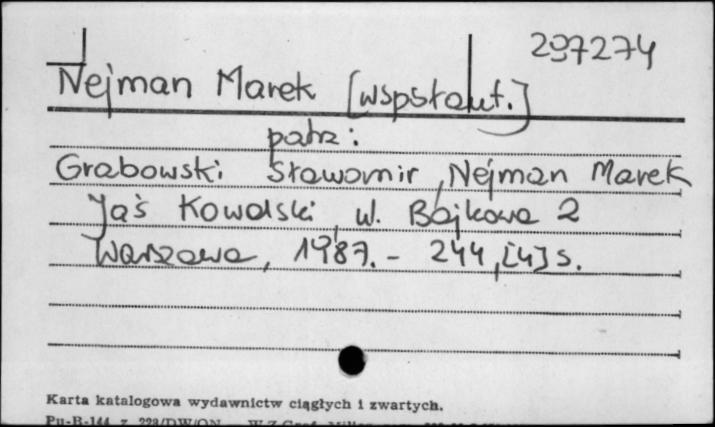 297274
Nejman Marek [współaut.]
patrz:
Grabowski Sławomir, Nejman Marek
Jaś Kowalski, ul. Bajkowa 2
Warszawa, 1987. - 244, [4] s.
Karta katalogowa wydawnictw ciągłych i zwartych.
Pu-B-144 z. 228/DW/ON